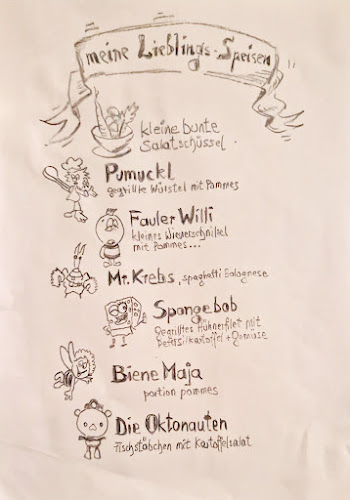 meine Lieblings-Speisen
kleine bunte
Salatschüssel
Pumuckl
gegrillte Würstel mit Pommes
Fauler Willi
kleines Wienerschnitzel
mit Pommes...
Mr. Krebs, spaghetti Bolognese
Spongebob
gegrilltes Hühnerfilet mit
Petersilkartoffel + Gemüse
Biene Maja
portion pommes
Die Oktonauten
Fischstäbchen mit Kartoffelsalat